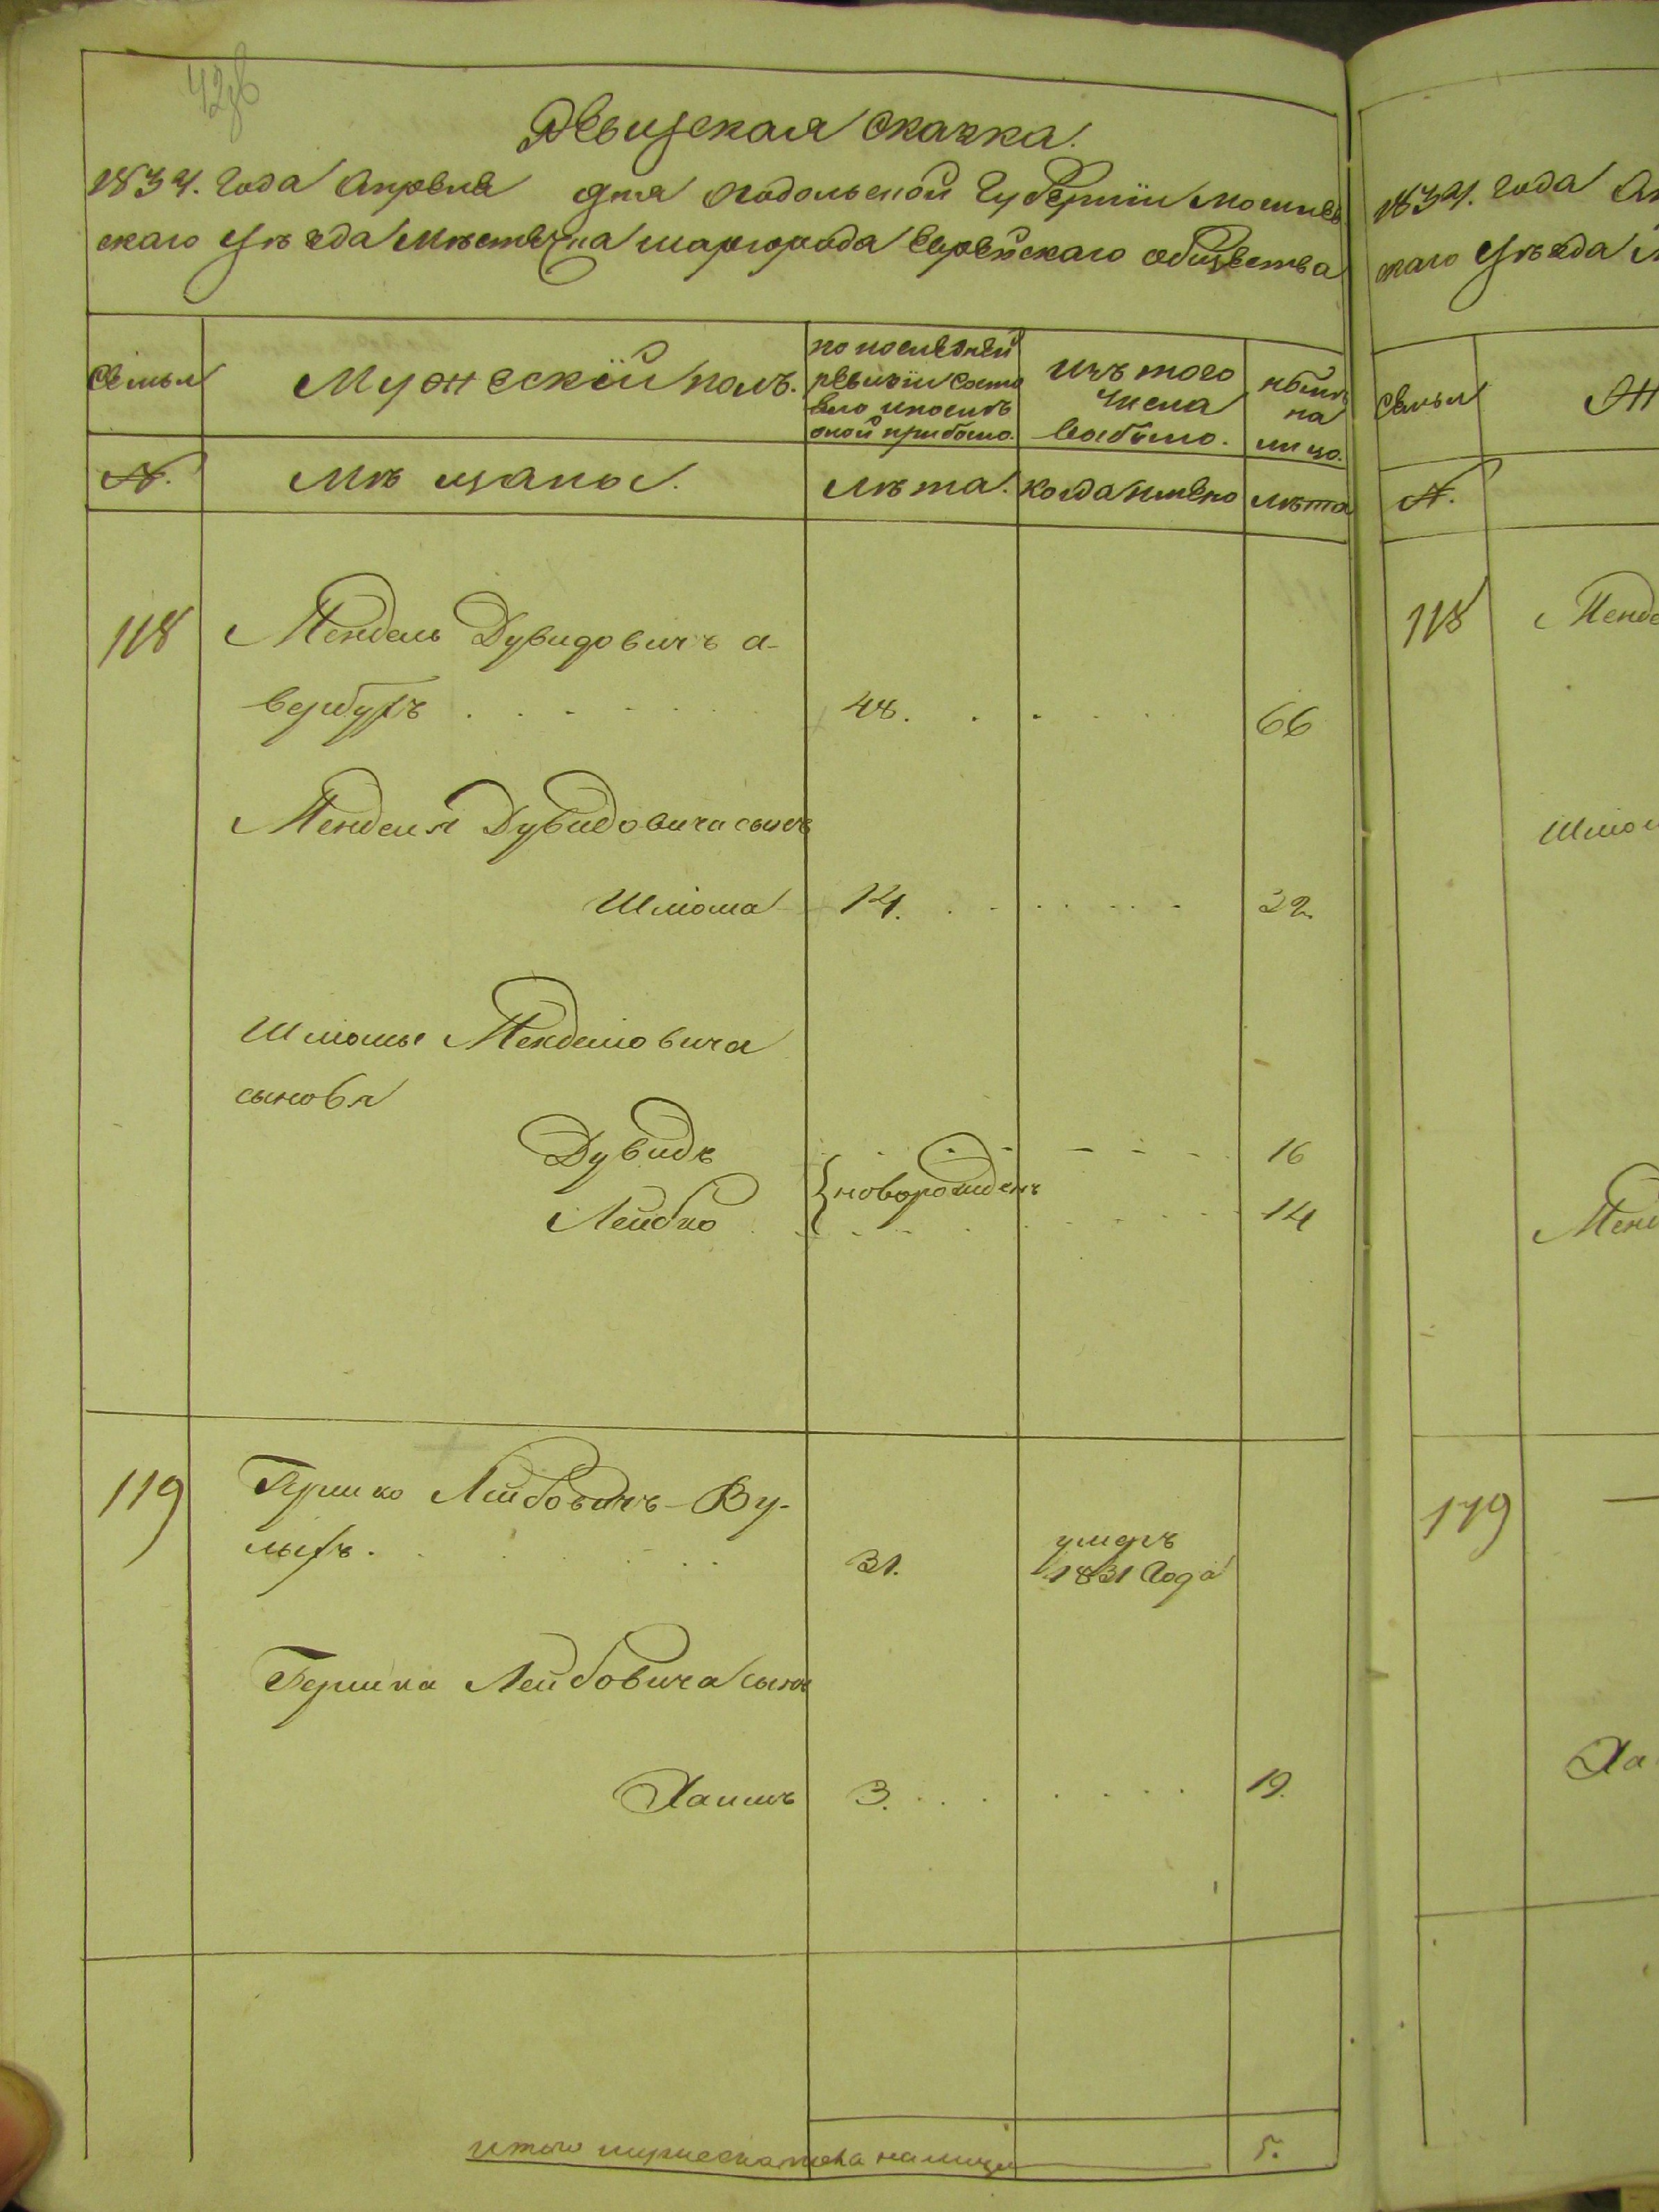 Ревизская сказка.
1834. года апреля дня Подольской губернии Могилев
скаго уѣзда мѣстечка Шаргорода Еврейскаго общества
семьи
Мужескій полъ.
по последней
ревизіи состо
яло и после
оной прибыло.
изъ того
числа
выбыло.
нынѣ
на
лицо.
№.
Мѣщане.
лѣта.
когда имено
лѣта
118
Мендель Дувидовичъ А-
вербухъ
48.
66
Менделя Дувидовича сынъ
Шлiома
14.
32
Шлiомы Менделiовича
сыновя
Дувидъ
16
новорожденъ
Лейбко
14
119
Гершко Лейбовичъ Ву-
31.
умеръ
1831 года
Гершка Лейбовича сынъ
Хаимъ
3.
19.
итого мужеска пола налицо
5.
1834. года
скаго уѣзда
семьи
№.
118
119